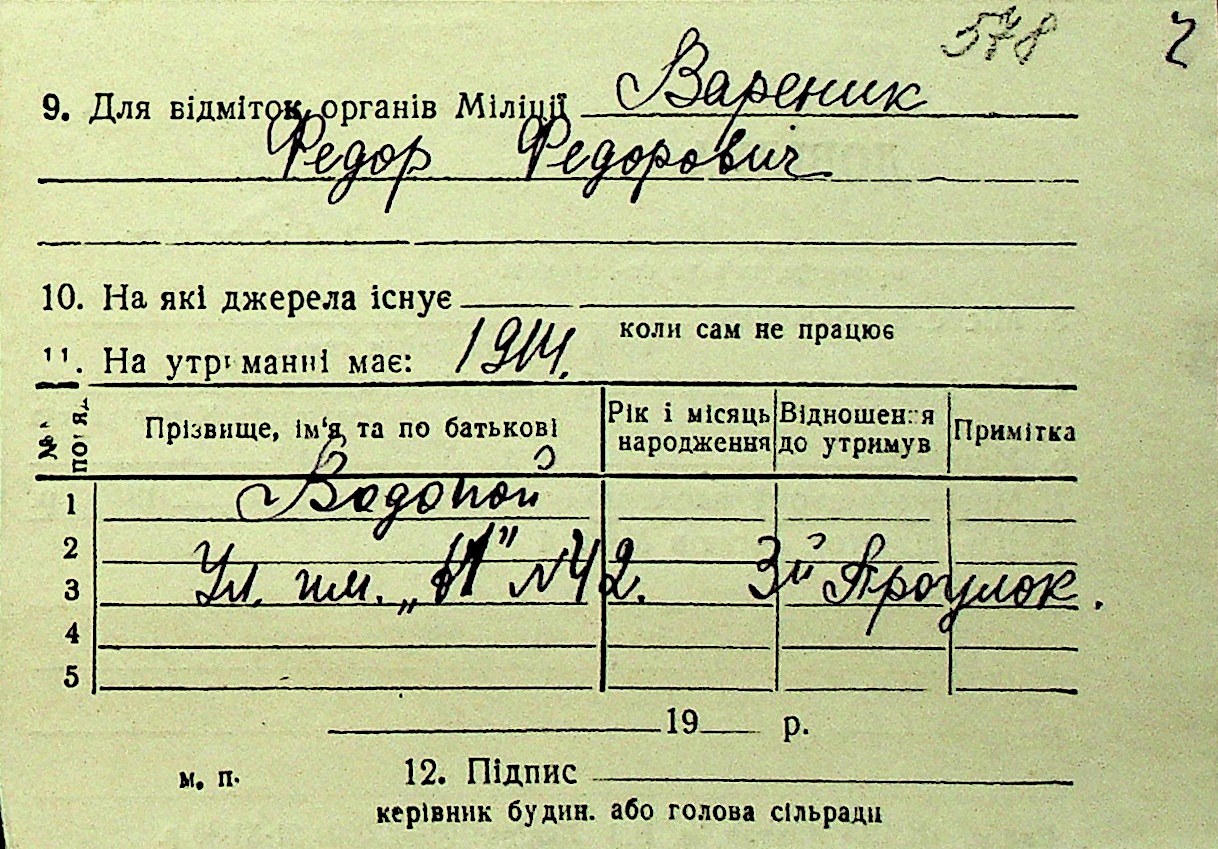 578
9. Для відміток органів Міліції Вареник
Федор Федорович
10. На які джерела існує
коли сам не працює
11. На утриманні має: 1914.
№ по пор. Прізвище, ім'я та по батькові Рік і місяць народження Відношення до утримув Примітка
1 Водопой
2
3 Ул. им. „11" №42. 3й Проулок.
4
5
19 р.
м. п. 12. Підпис
керівник будин. або голова сільради